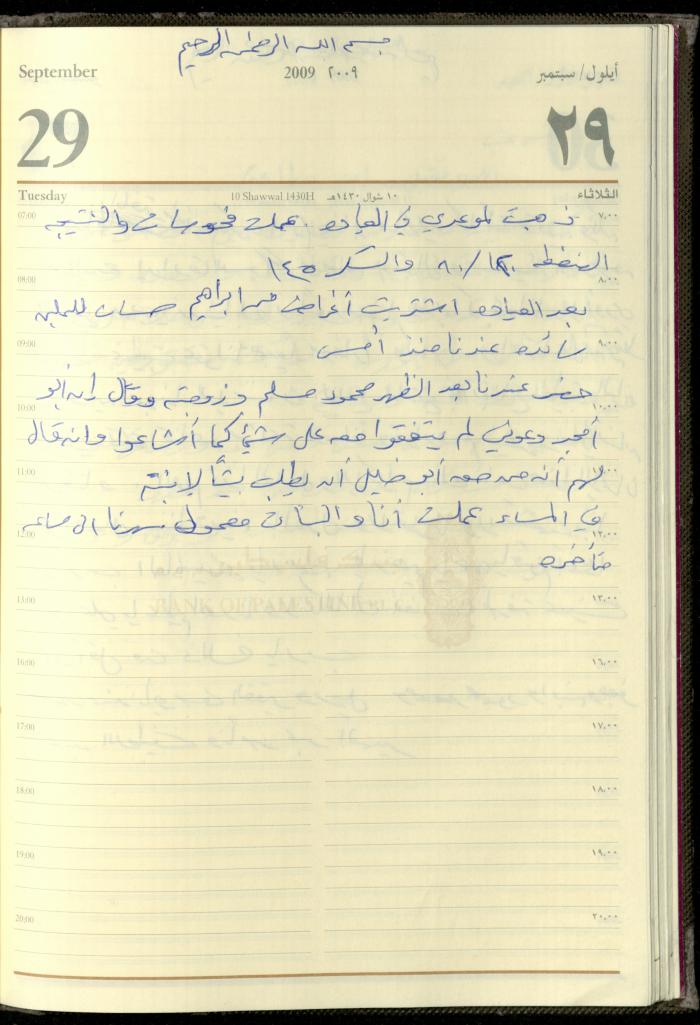 بسم الله الرحمن الرحيم
September 2009 ٢٠٠٩ أيلول/سبتمبر
29 ٢٩
Tuesday 10 Shawwal 1430H ١٠ شوال ١٤٣٠هـ الثلاثاء
07:00 ذهبت لموعدي في العياده. عملت فحوصات والنتيجه ٧,٠٠
الضغط /٨٠ والسكر ١٤٥
08:00 ٨,٠٠
بعد العياده اشتريت أغراض من ابراهيم حسان
09:00 رائده عندنا منذ أمس ٩,٠٠
حضر عندنا بعد الظهر محمود مسلم وزوجته وقال إنه أبو
10:00 ١٠,٠٠
أمجد وعوني لم يتفقوا معه على شيء كما أشاعوا وانه قال
11:00 لهم أنه من حق أبو خليل أن يطلب لابنته ١١,٠٠
في المساء عملت أنا والبنات معمول سهرنا الى ساعه
12:00 ١٢,٠٠
متأخره
13:00 BANK OF PALESTINE ١٣,٠٠
16:00 ١٦,٠٠
17:00 ١٧,٠٠
18:00 ١٨,٠٠
19:00 ١٩,٠٠
20:00 ٢٠,٠٠